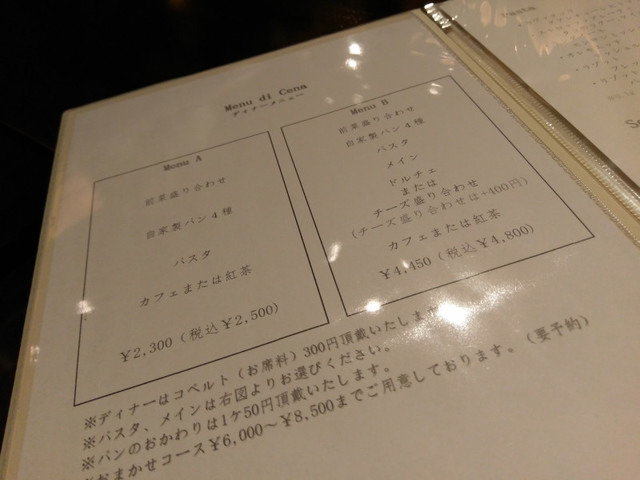 Menu di Cena
ディナーメニュー
Menu A
前菜盛り合わせ
自家製パン4種
パスタ
カフェまたは紅茶
¥2,300(税込¥2,500)
Menu B
前菜盛り合わせ
自家製パン4種
パスタ
メイン
ドルチェ
または
チーズ盛り合わせ
(チーズ盛り合わせは+400円)
カフェまたは紅茶
¥4,450(税込¥4,800)
※ディナーはコペルト(お席料)300円頂戴いたします。
※パスタ、メインは右図よりお選びください。
※パンのおかわりは1ケ50円頂戴いたします。
※おまかせコース¥6,000~¥8,500までご用意しております。(要予約)
Pasta